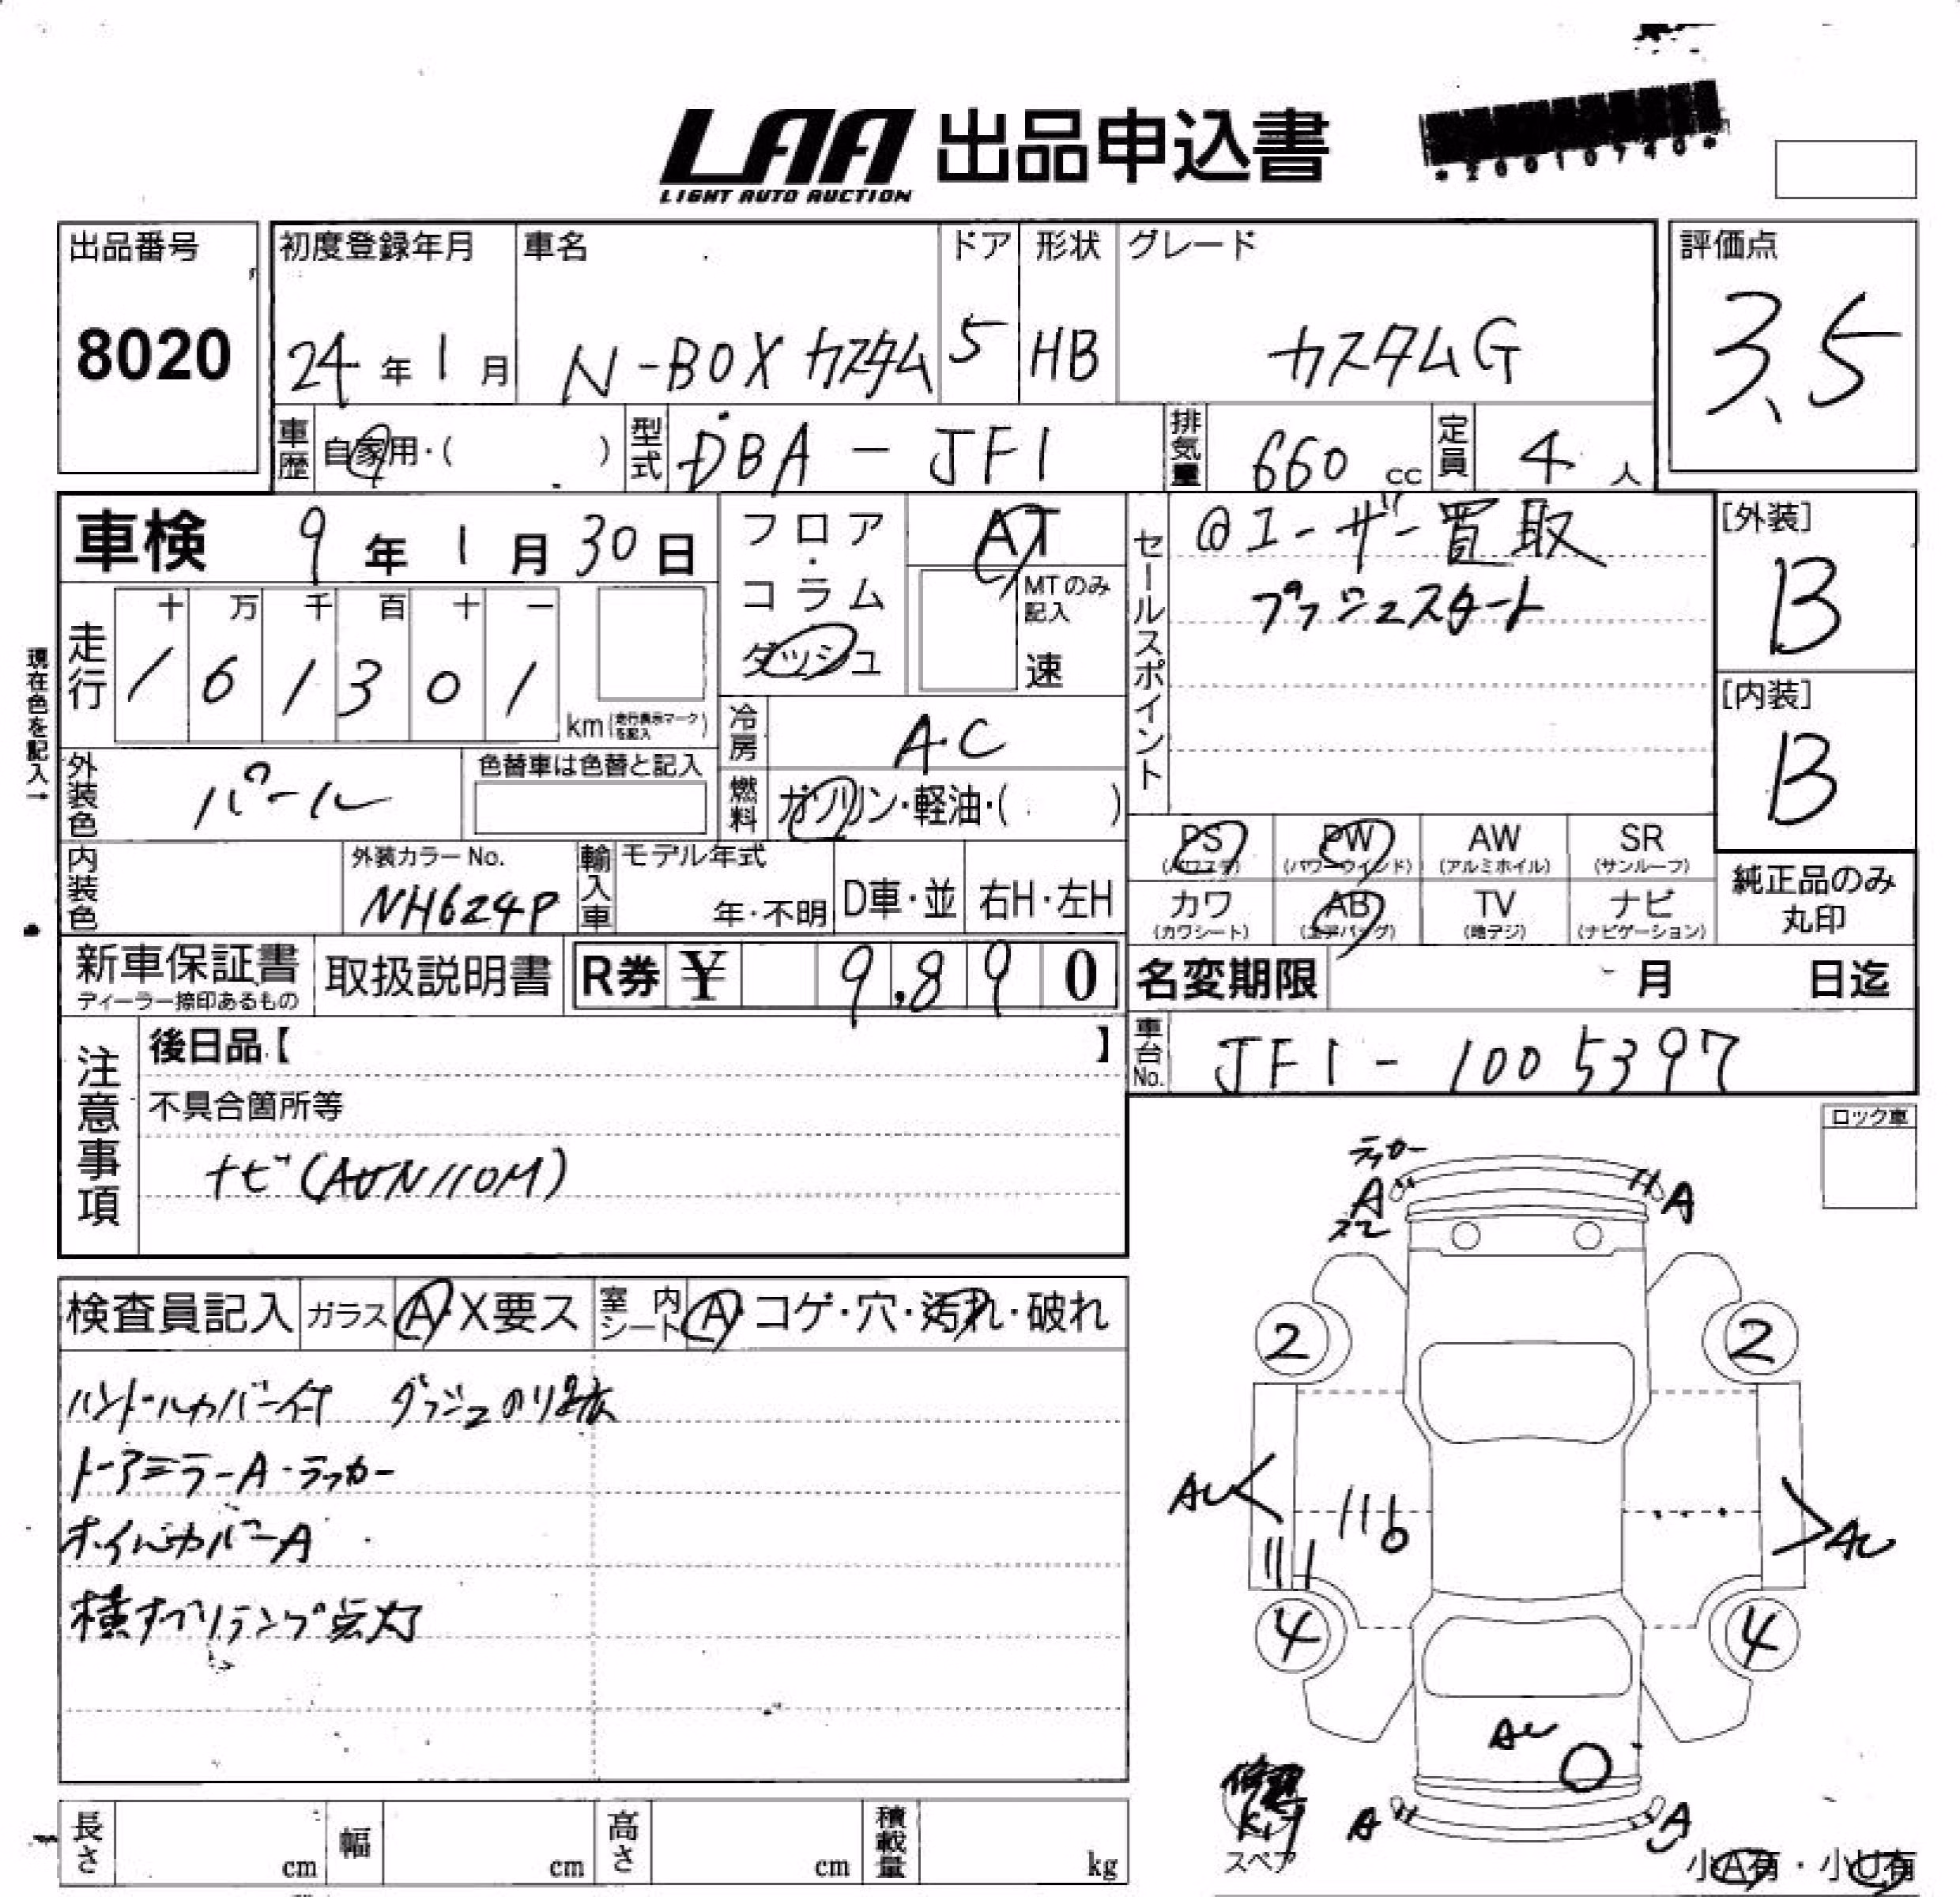 LAA 出品申込書
LIGHT AUTO AUCTION
出品番号
8020
初度登録年月
24年1月
車名
N-BOX カスタム
ドア
5
形状
HB
グレード
カスタムG
評価点
3.5
車歴 自家用・( )
型式 DBA-JF1
排気量 660 cc
定員 4 人
車検 9年1月30日
フロア・コラム
ダッシュ
AT
MTのみ記入
速
セールスポイント
@ユーザー買取
プッシュスタート
[外装]
B
[内装]
B
現在色を記入→
走行
十 万 千 百 十 一
1 6 1 3 0 1
km(走行表示マークを記入)
冷房 A.C
燃料 ガソリン・軽油・( )
外装色 パール
色替車は色替と記入
内装色
外装カラーNo.
NH624P
輸入車
モデル年式
年・不明
D車・並
右H・左H
PS (パワステ)
PW (パワーウィンド)
AW (アルミホイル)
SR (サンルーフ)
カワ (カワシート)
AB (エアバッグ)
TV (地デジ)
ナビ (ナビゲーション)
純正品のみ丸印
新車保証書
ディーラー捺印あるもの
取扱説明書
R券 ¥ 9,890
名変期限 月 日迄
車台No. JF1-1005397
注意事項
後日品【 】
不具合箇所等
ナビ(AVN110M)
ロック車
検査員記入
ガラス A・X要ス
室内シート A・コゲ・穴・汚れ・破れ
ハンドルカバー付 ダッシュのり跡
ドアミラーA・ラッカー
ホイルカバーA
横すべりランプ点灯
ラッカー
A
スレ
A
2
2
AU
AU
4
4
AU
A
A
修理
Kit
スペア
小A有・小U有
長さ cm
幅 cm
高さ cm
積載量 kg